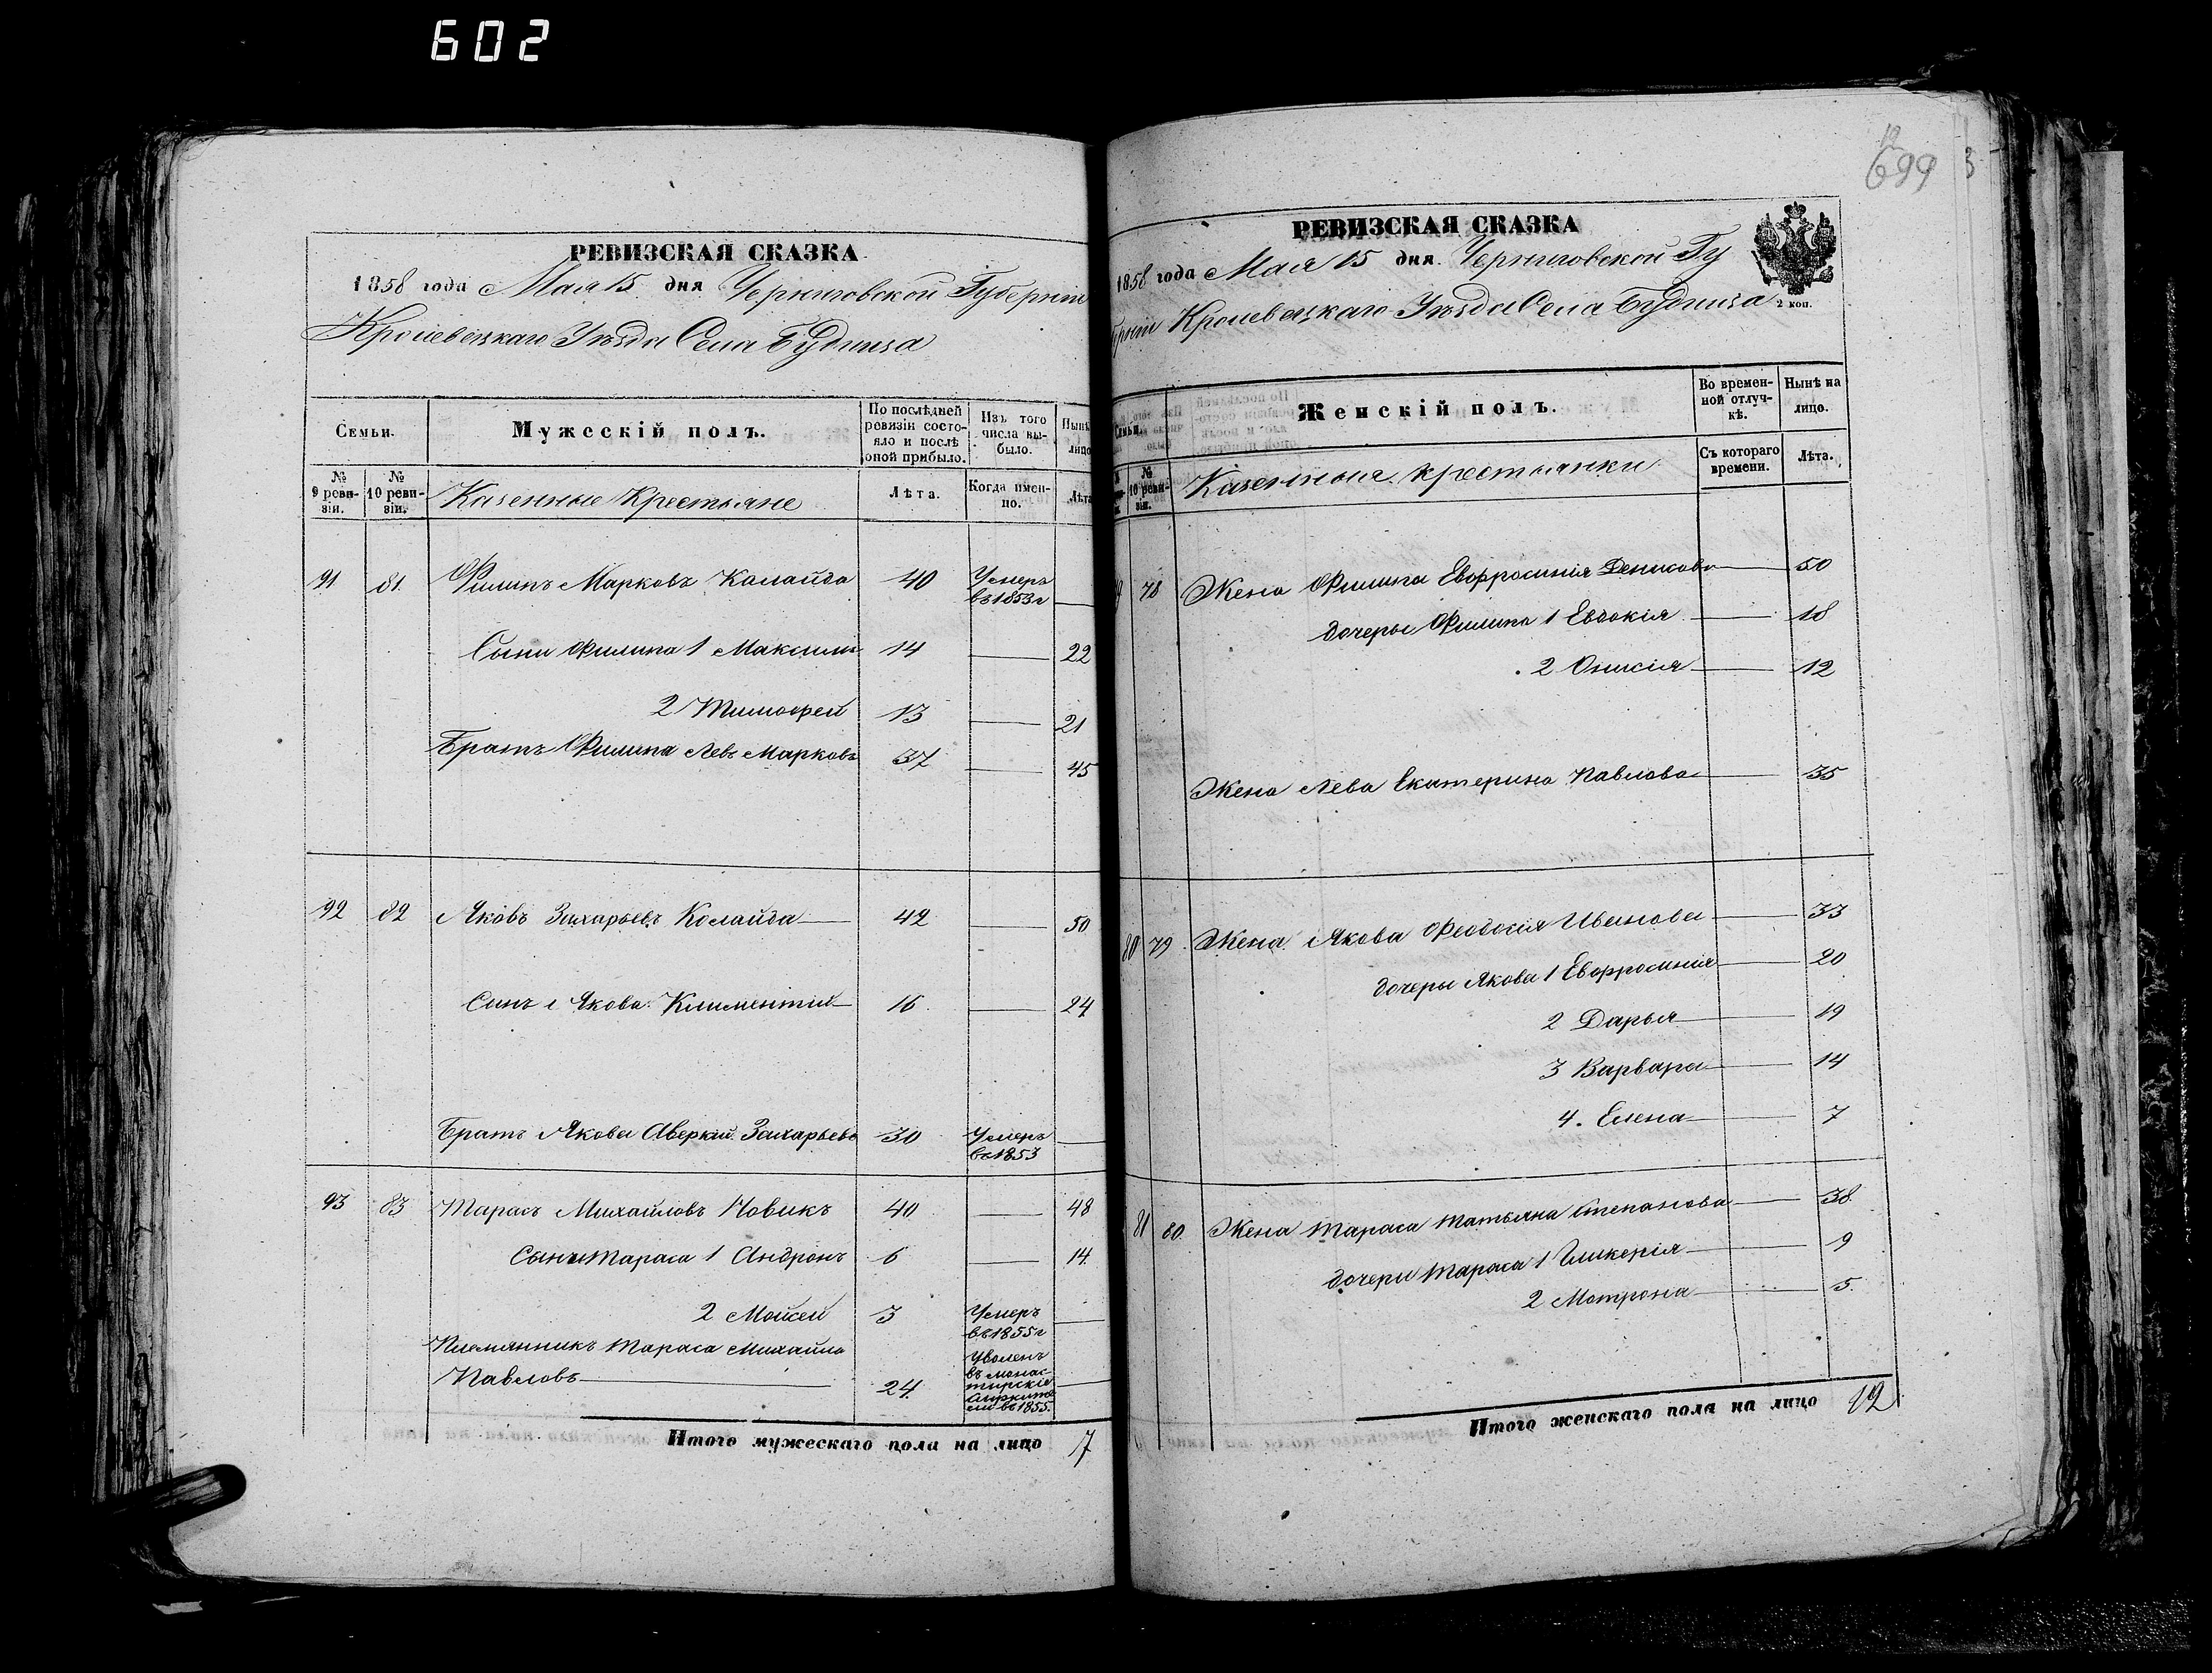 602
РЕВИЗСКАЯ СКАЗКА
1858 года Мая 15 дня Черниговской Губерніи
Кролевецкаго Уѣзда Села Будища
Семьи.
Мужескій полъ.
По послѣдней ревизіи состояло и послѣ оной прибыло.
Изъ того числа выбыло.
Нынѣ лицо
№ 9 ревизіи.
№ 10 ревизіи.
Казенные Крестьяне
Лѣта.
Когда именно.
Лѣта
91 81. Филипъ Марковъ Калайда 40 Умеръ въ 1853 г
Сыни Филипа 1 Максимъ 14 22
2 Тимофей 13 21
Братъ Филипа Левъ Марковъ 37 45
92 82 Яковъ Захарьевъ Колайда 42 50
Сынъ Якова Климентій 16 24
Братъ Якова Аверкій Захарьевъ 30 Умеръ въ 1853
93 83 Тарасъ Михайловъ Новикъ 40 48
Сыни Тараса 1 Андронъ 6 14
2 Мойсей 3 Умеръ въ 1855 г
Племянникъ Тараса Михайло
Павловъ 24 Уволенъ въ монастирскіе въ 1855.
Итого мужескаго пола на лицо 7
12
699
3
РЕВИЗСКАЯ СКАЗКА
1858 года Мая 15 дня Черниговской Гу
берніи Кролевецкаго Уѣзда Села Будища
2 коп.
Семьи.
Женскій полъ.
Во временной отлучкѣ.
Нынѣ на лицо.
№ 10 ревизіи.
Казенныя крестьянки
Съ котораго времени.
Лѣта.
78 Жена Филипа Евфросинія Денисова 50
дочеры Филипа 1 Евдокія 18
2 Онисія 12
Жена Лева Екатерина Павлова 35
80 79 Жена Якова Феодосія Иванова 33
дочеры Якова 1 Евфросинія 20
2 Дарья 19
3 Варвара 14
4. Елена 7
81 80. Жена Тараса Татьяна Степанова 38
дочери Тараса 1 Гликерія 9
2 Мотрона 5.
Итого женскаго пола на лицо 12